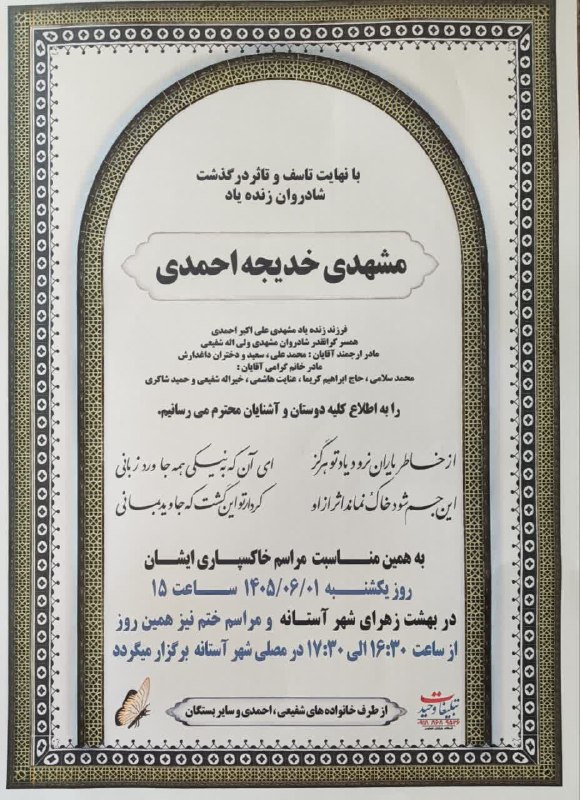 با نهایت تاسف و تاثر درگذشت
شادروان زنده یاد
مشهدی خدیجه احمدی
فرزند زنده یاد مشهدی علی اکبر احمدی
همسر گرانقدر شادروان مشهدی ولی اله شفیعی
مادر ارجمند آقایان : محمد علی ، سعید و دختران داغدارش
مادر خانم گرامی آقایان :
محمد سلامی ، حاج ابراهیم کریما ، عنایت هاشمی ، خیراله شفیعی و حمید شاکری
را به اطلاع کلیه دوستان و آشنایان محترم می رسانیم.
از خاطر یاران نرود یاد تو هرگز ای آن که به نیکی همه جا ورد زبانی
این جسم شود خاک نماند اثر از او کردار تو این گشت که جاوید بمانی
به همین مناسبت مراسم خاکسپاری ایشان
روز یکشنبه ۱۴۰۵/۰۶/۰۱ ساعت ۱۵
در بهشت زهرای شهر آستانه و مراسم ختم نیز همین روز
از ساعت ۱۶:۳۰ الی ۱۷:۳۰ در مصلی شهر آستانه برگزار میگردد
از طرف خانواده های شفیعی ، احمدی و سایر بستگان
تبلیغات وحید